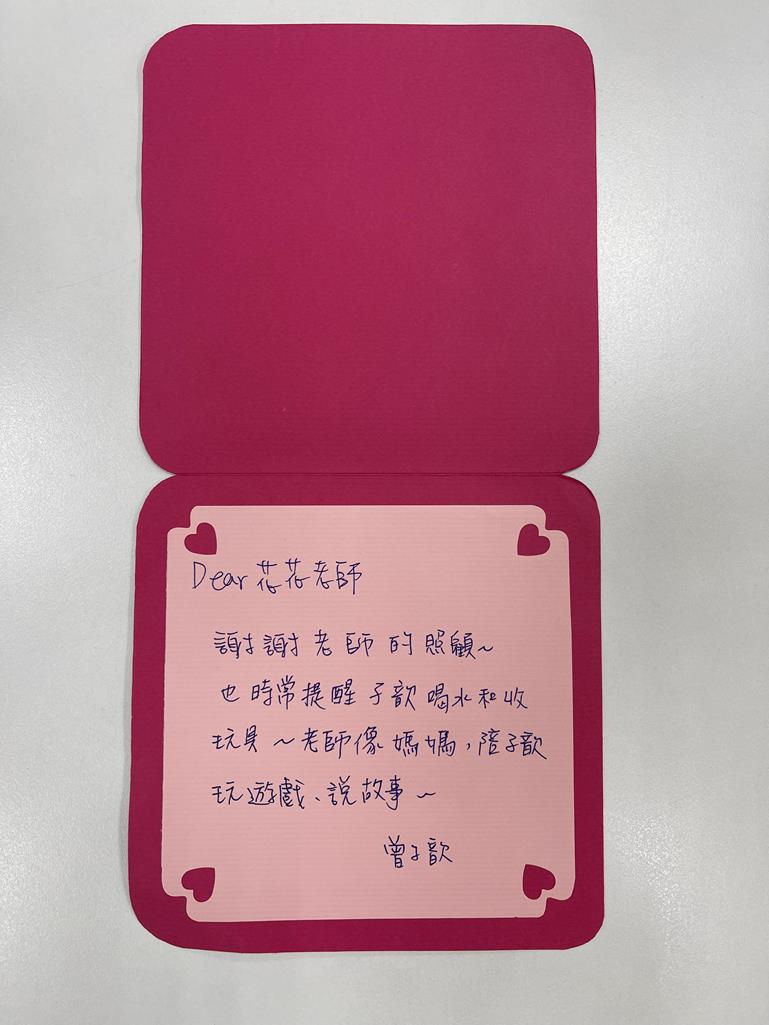 Dear 花花老師
謝謝老師的照顧~
也時常提醒子歆喝水和收
玩具~老師像媽媽，陪子歆
玩遊戲、說故事~
曾子歆